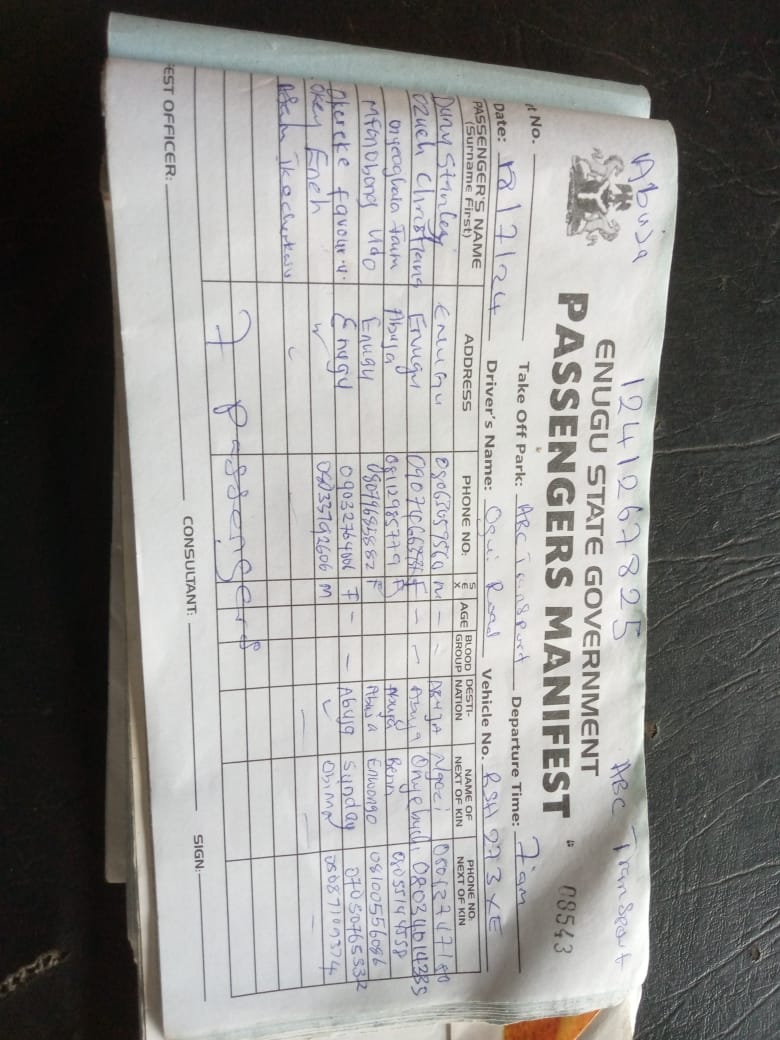 1241267825
Abuja
ABC Transport
ENUGU STATE GOVERNMENT
PASSENGERS MANIFEST 08543
No. Take Off Park: ABC Transport Departure Time: 7am
Date: 18/7/24 Driver's Name: Ogui Road Vehicle No. RSH 273 XE
PASSENGER'S NAME (Surname First) ADDRESS PHONE NO: SEX AGE BLOOD GROUP DESTINATION NAME OF NEXT OF KIN PHONE NO. NEXT OF KIN
Stanley Enugu M - - Abuja Ngozi
Ozueh Christiana Enugu F - - Abuja Onyebuchi 08034014285
Abuja 08112985779 F Abuja Benn
Mfonobong Udo Enugu 08079682882 F Abuja Enwongo 08100556086
Okereke favour .u. Enugu F - - Abuja Sunday 07030765332
Okey Eneh 08033792606 M Obinna 08087109374
Adam Ikechukwu
7 passengers
EST OFFICER: CONSULTANT: SIGN: